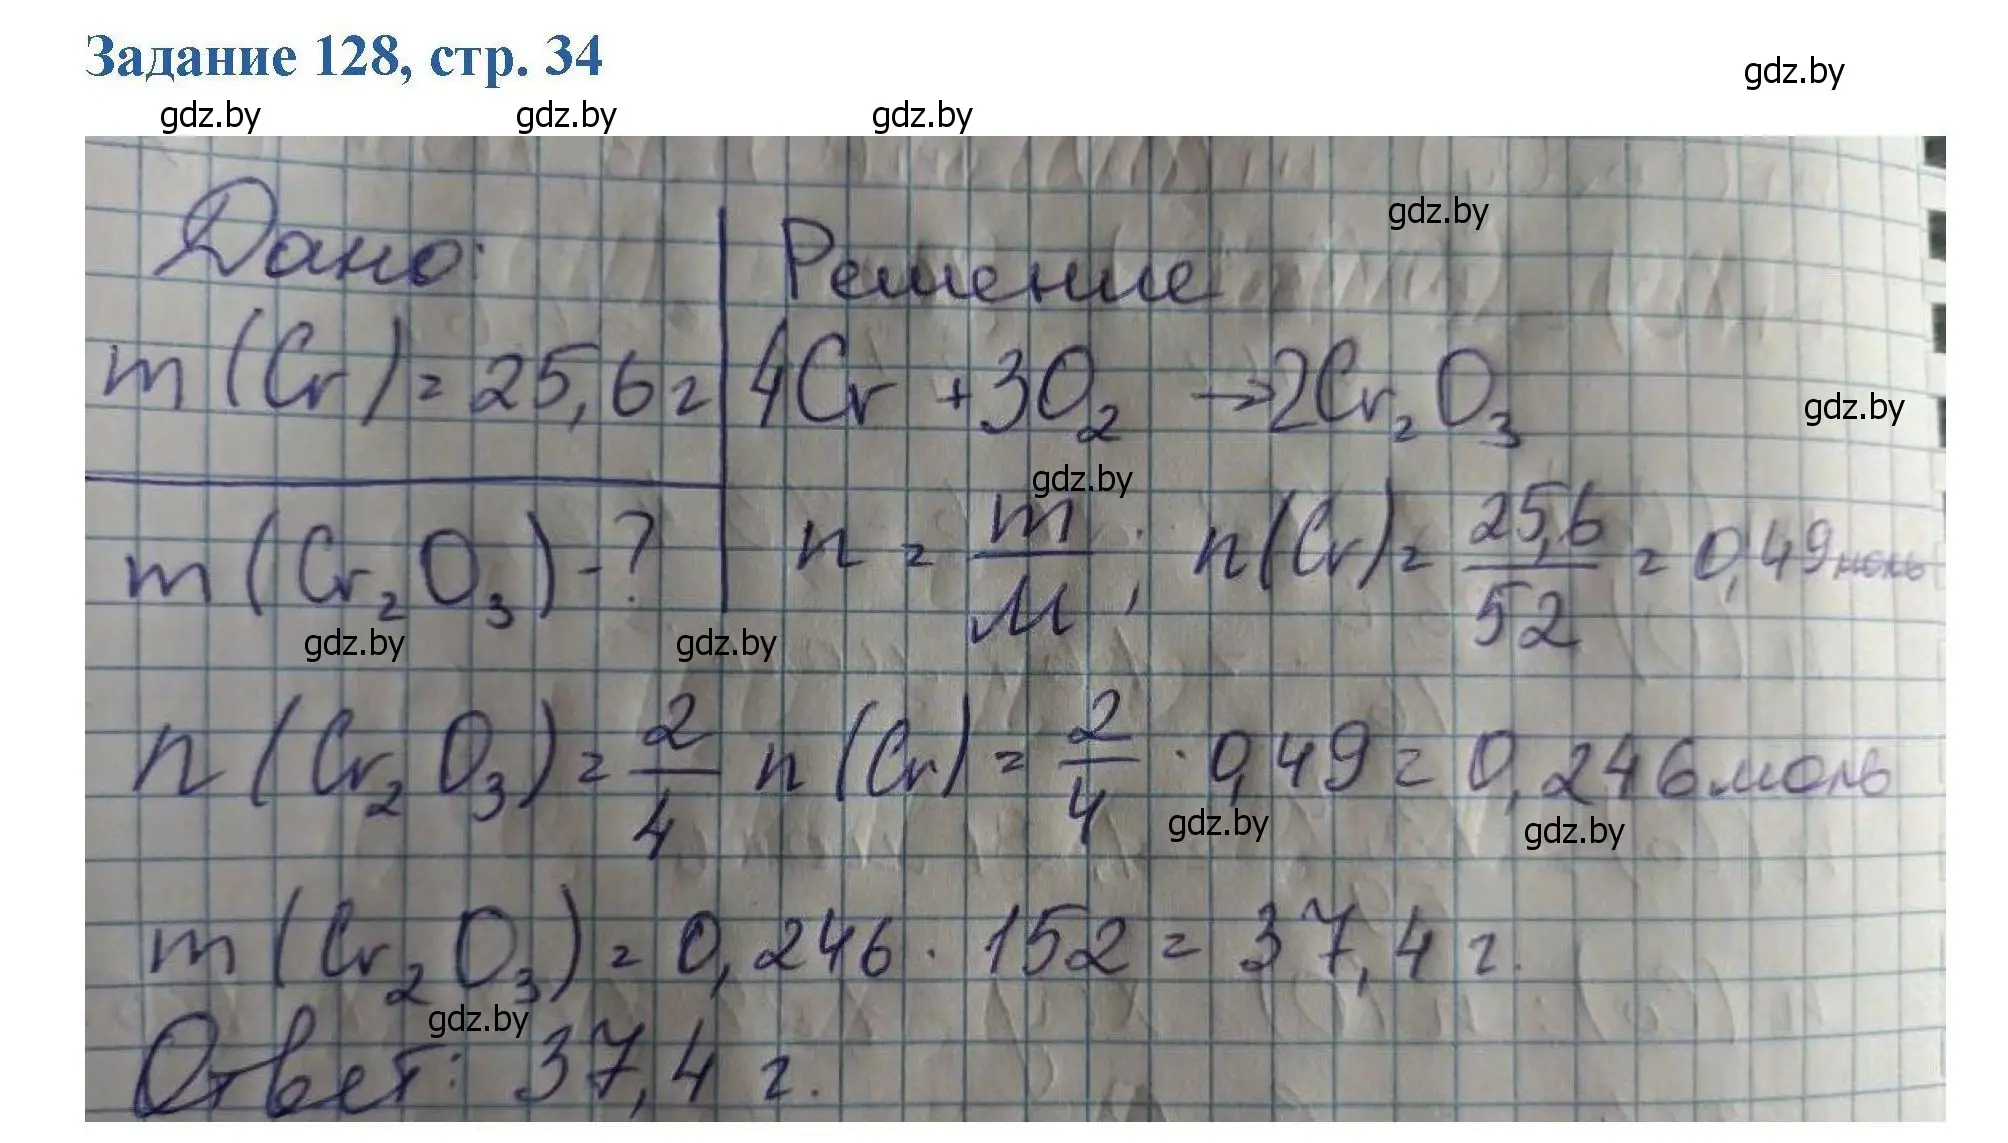 Задание 128, стр. 34
gdz.by
gdz.by gdz.by gdz.by
Дано:
m(Cr) = 25,6 г
m(Cr₂O₃) - ?
Решение
gdz.by
4Cr + 3O₂ → 2Cr₂O₃
gdz.by
gdz.by
n = m/M; n(Cr) = 25,6/52 = 0,49 моль
gdz.by gdz.by
n(Cr₂O₃) = 2/4 n(Cr) = 2/4 · 0,49 = 0,246 моль
gdz.by gdz.by
m(Cr₂O₃) = 0,246 · 152 = 37,4 г.
gdz.by
Ответ: 37,4 г.